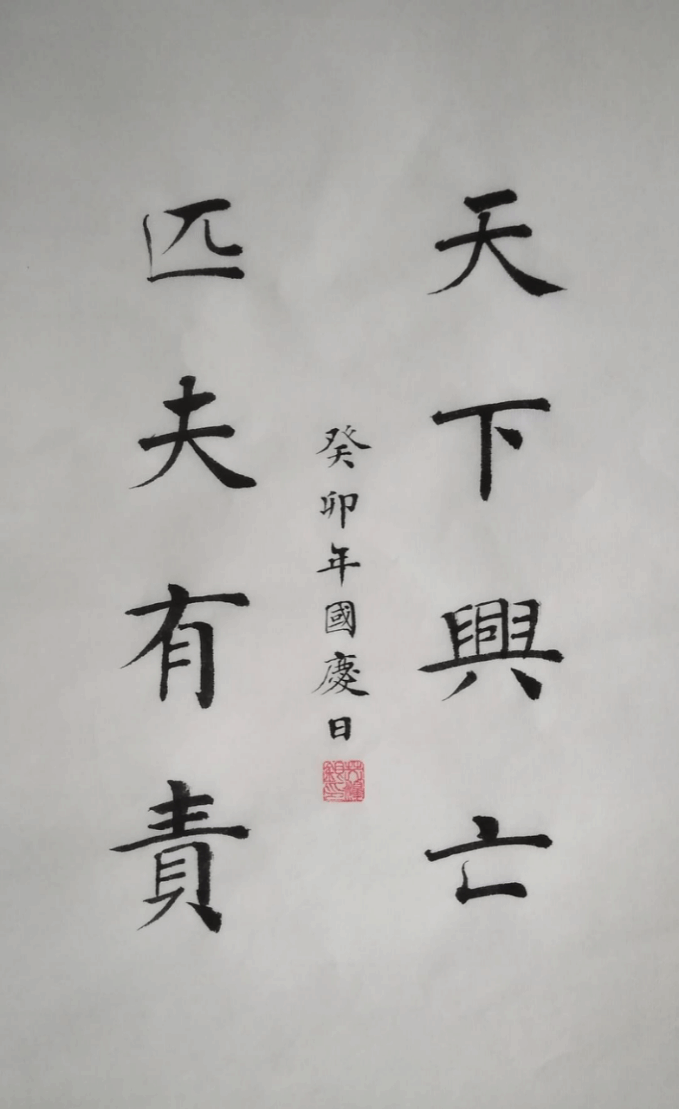 天下興亡
匹夫有責
癸卯年國慶日